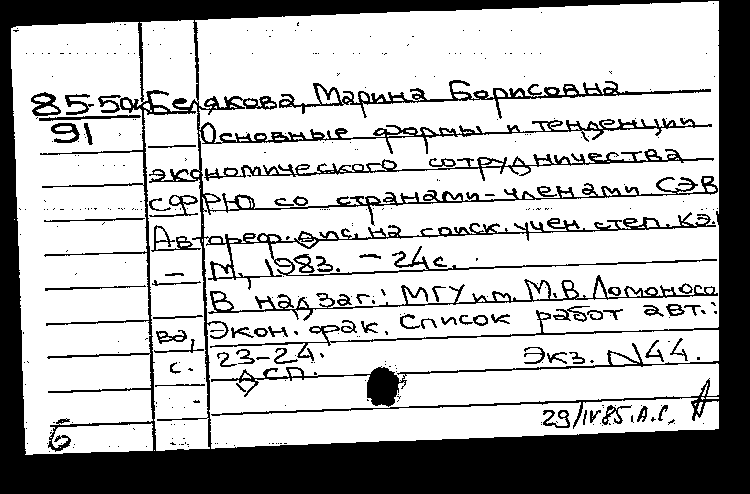 85-50к Белякова, Марина Борисовна
91 Основные формы и тенденции
экономического сотрудничества
СФРЮ со странами-членами СЭВ
Автореф. дис. на соиск. учен. степ. к.э.
- М., 1983. - 24 с.
В надзаг.: МГУ им. М.В. Ломоносо
ва, Экон. фак. Список работ авт.:
с. 23-24.
Экз. N44.
дсп.
29/IV 85. А.С.
б